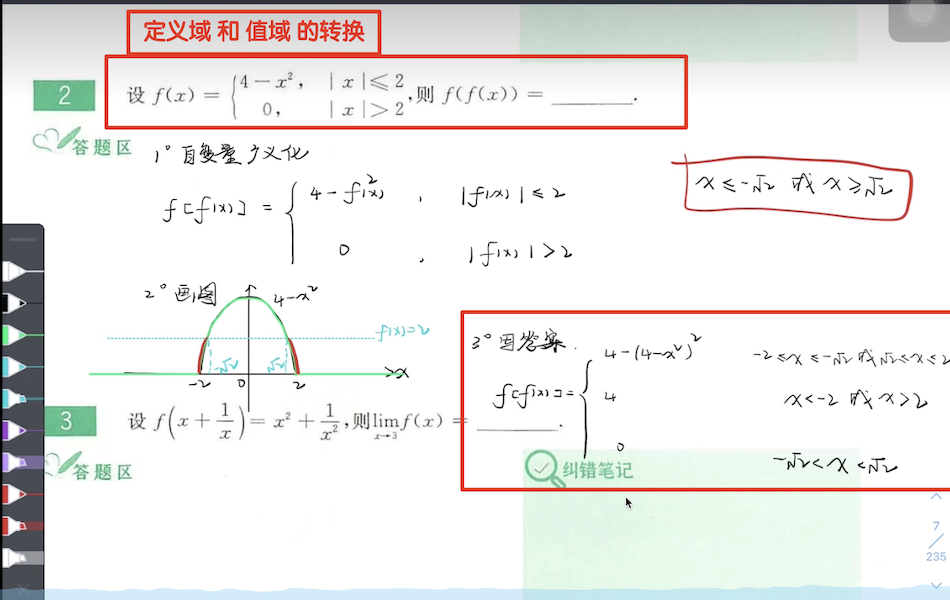 定义域 和 值域 的转换
2
设 f(x) = { 4－x², ｜x｜≤2
0, ｜x｜>2 ,则 f(f(x)) = ______.
答题区
1° 自变量广义化
f[f(x)] = { 4－f²(x) , |f(x)| ≤ 2
0 , |f(x)| > 2
x ≤ -√2 或 x ≥ √2
2° 画图
4-x²
f(x)=2
-√2 √2
-2 0 2 x
3° 因答案.
f[f(x)] = { 4-(4-x²)² -2≤x≤-√2 或 √2≤x≤2
4 x<-2 或 x>2
0 -√2<x<√2
3
设 f(x + 1/x) = x² + 1/x² ,则 lim x→3 f(x) = ______.
答题区
纠错笔记
7
/
235